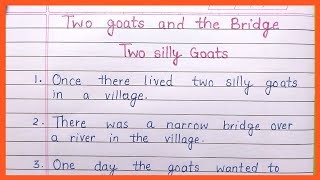 Two goats and the Bridge
Two silly Goats
1. Once there lived two silly goats
in a village.
2. There was a narrow bridge over
a river in the village.
3. One day the goats wanted to